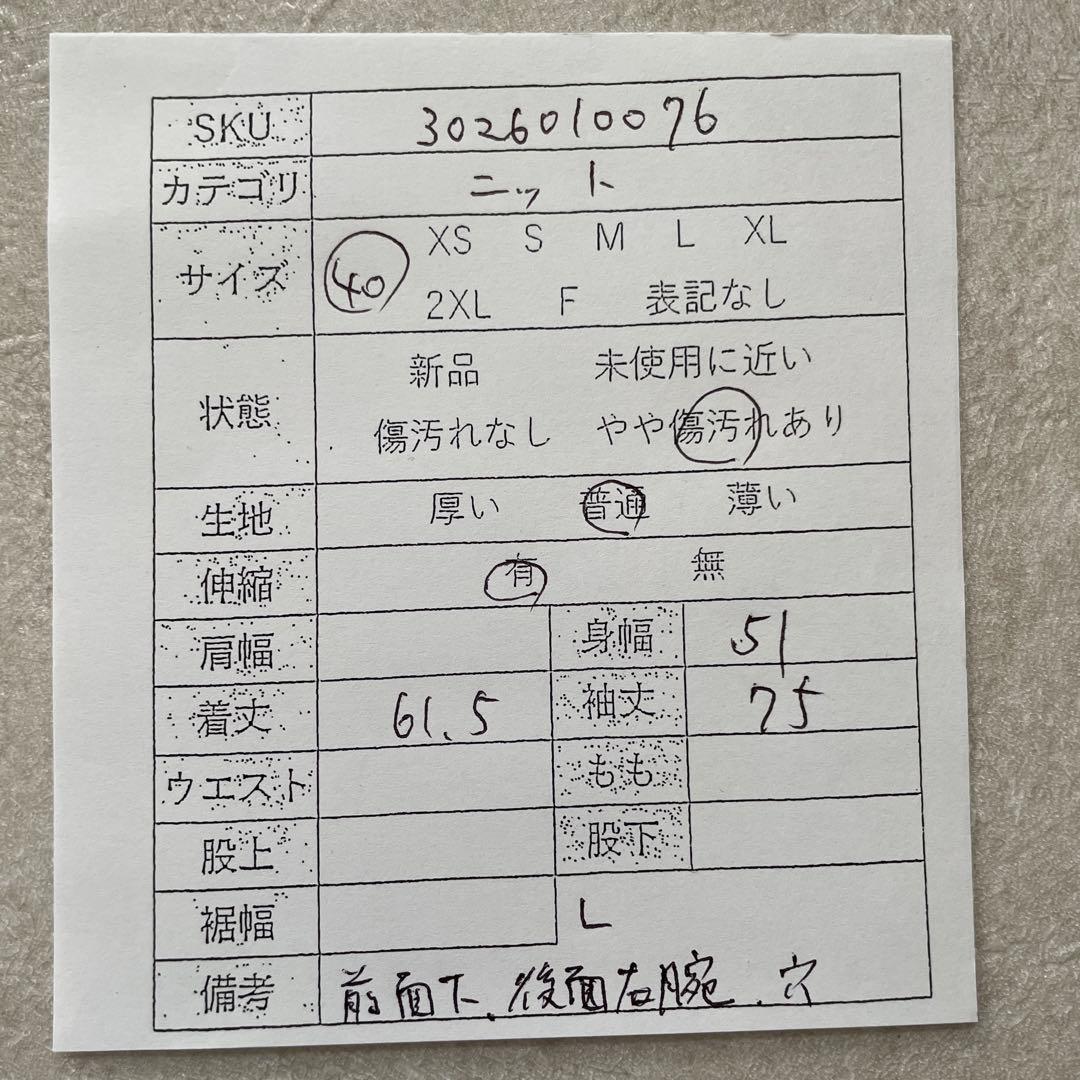 SKU 3026010076
カテゴリ ニット
サイズ 40 XS S M L XL
2XL F 表記なし
状態 新品 未使用に近い
傷汚れなし やや傷汚れあり
生地 厚い 普通 薄い
伸縮 有 無
肩幅 身幅 51
着丈 61.5 袖丈 75
ウエスト もも
股上 股下
裾幅 L
備考 前面下、後面右腕、穴